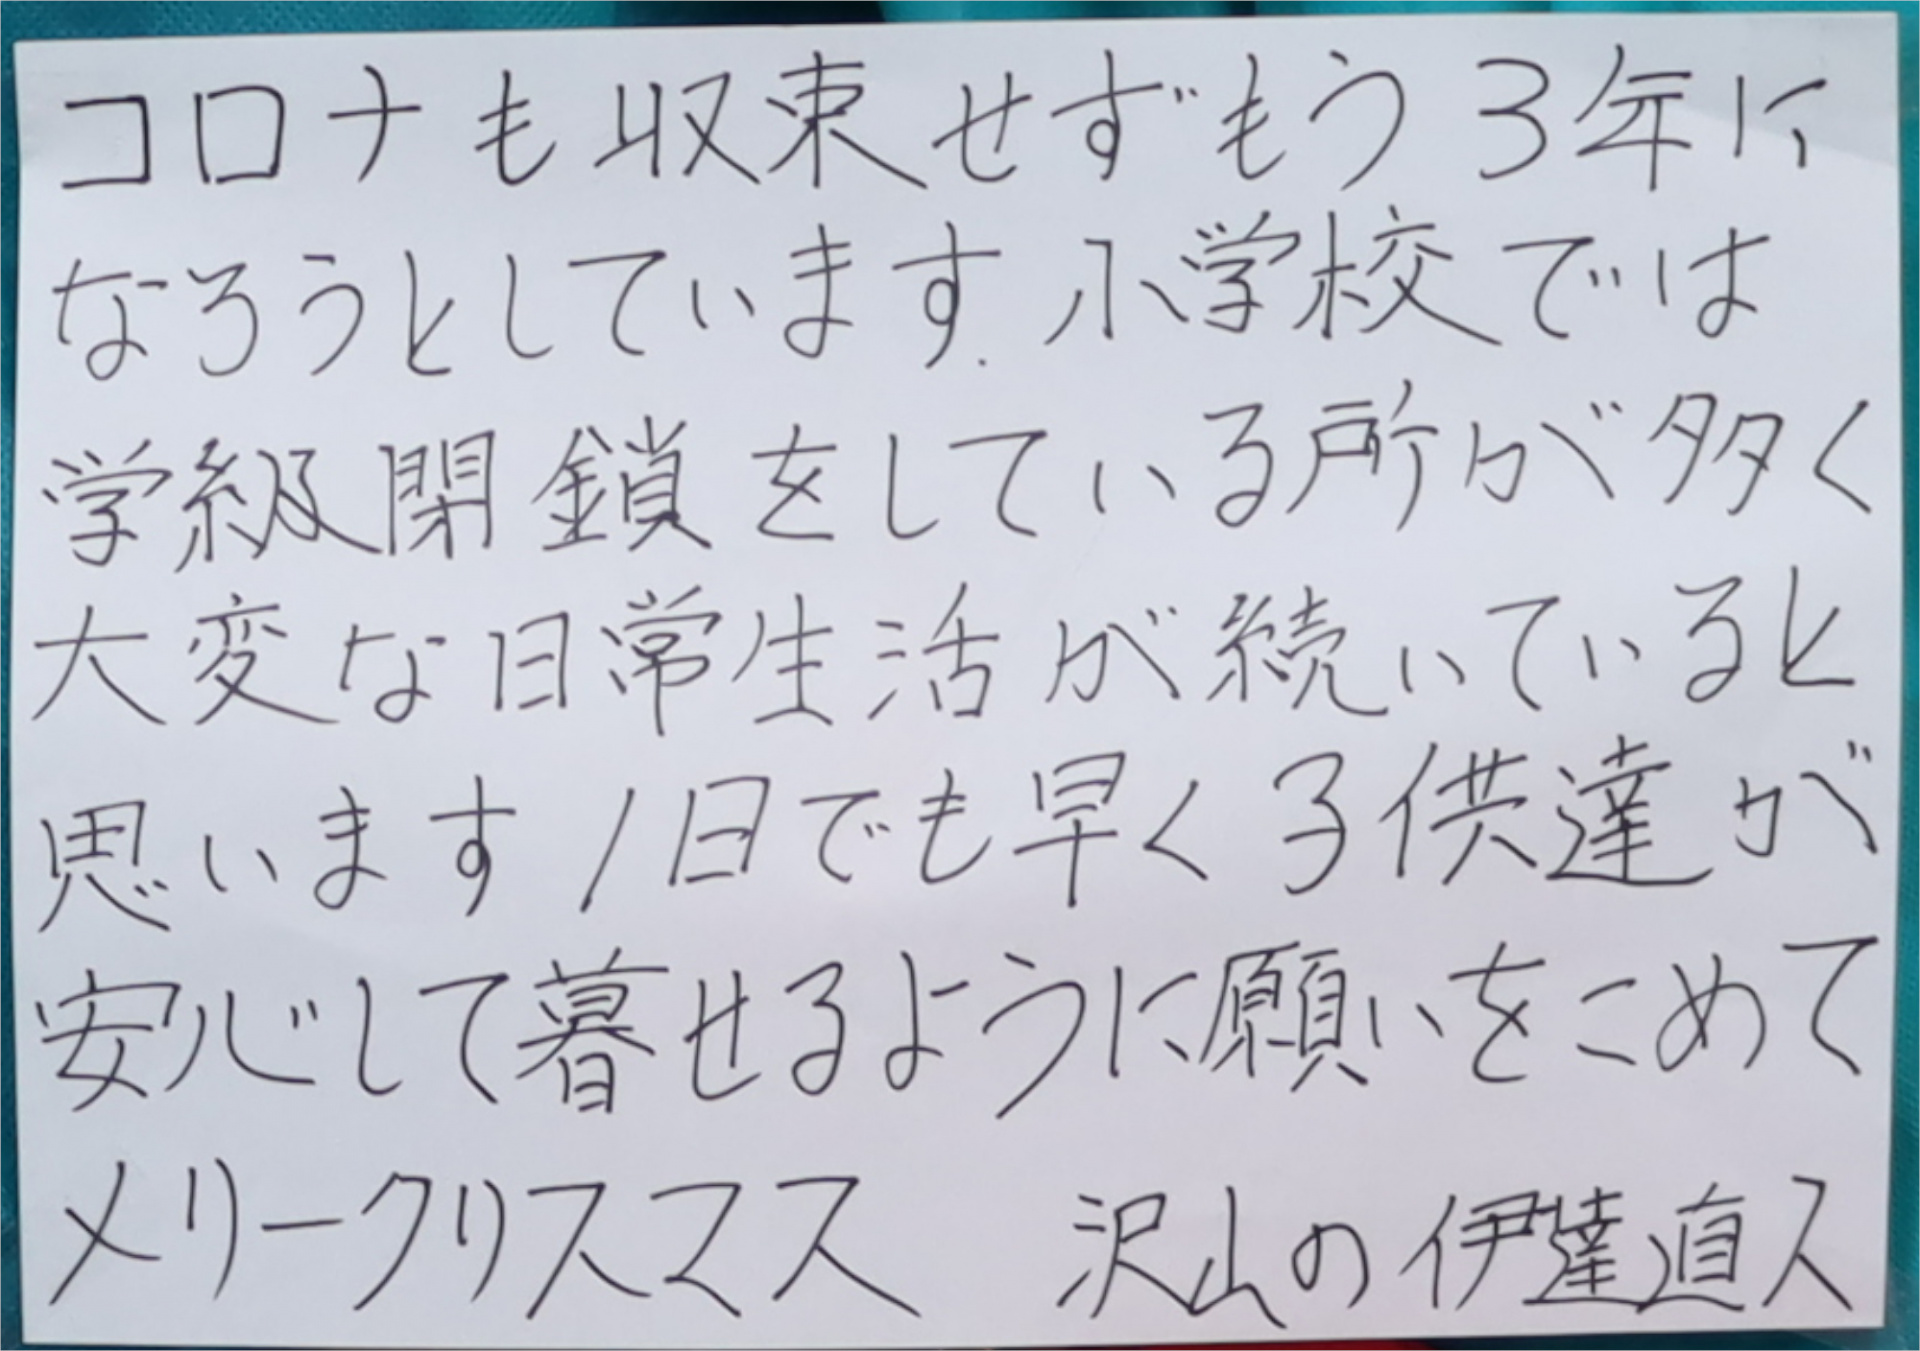 コロナも収束せずもう3年に
なろうとしています.小学校では
学級閉鎖をしている所が多く
大変な日常生活が続いていると
思います1日でも早く子供達が
安心して暮せるように願いをこめて
メリークリスマス 沢山の伊達直人